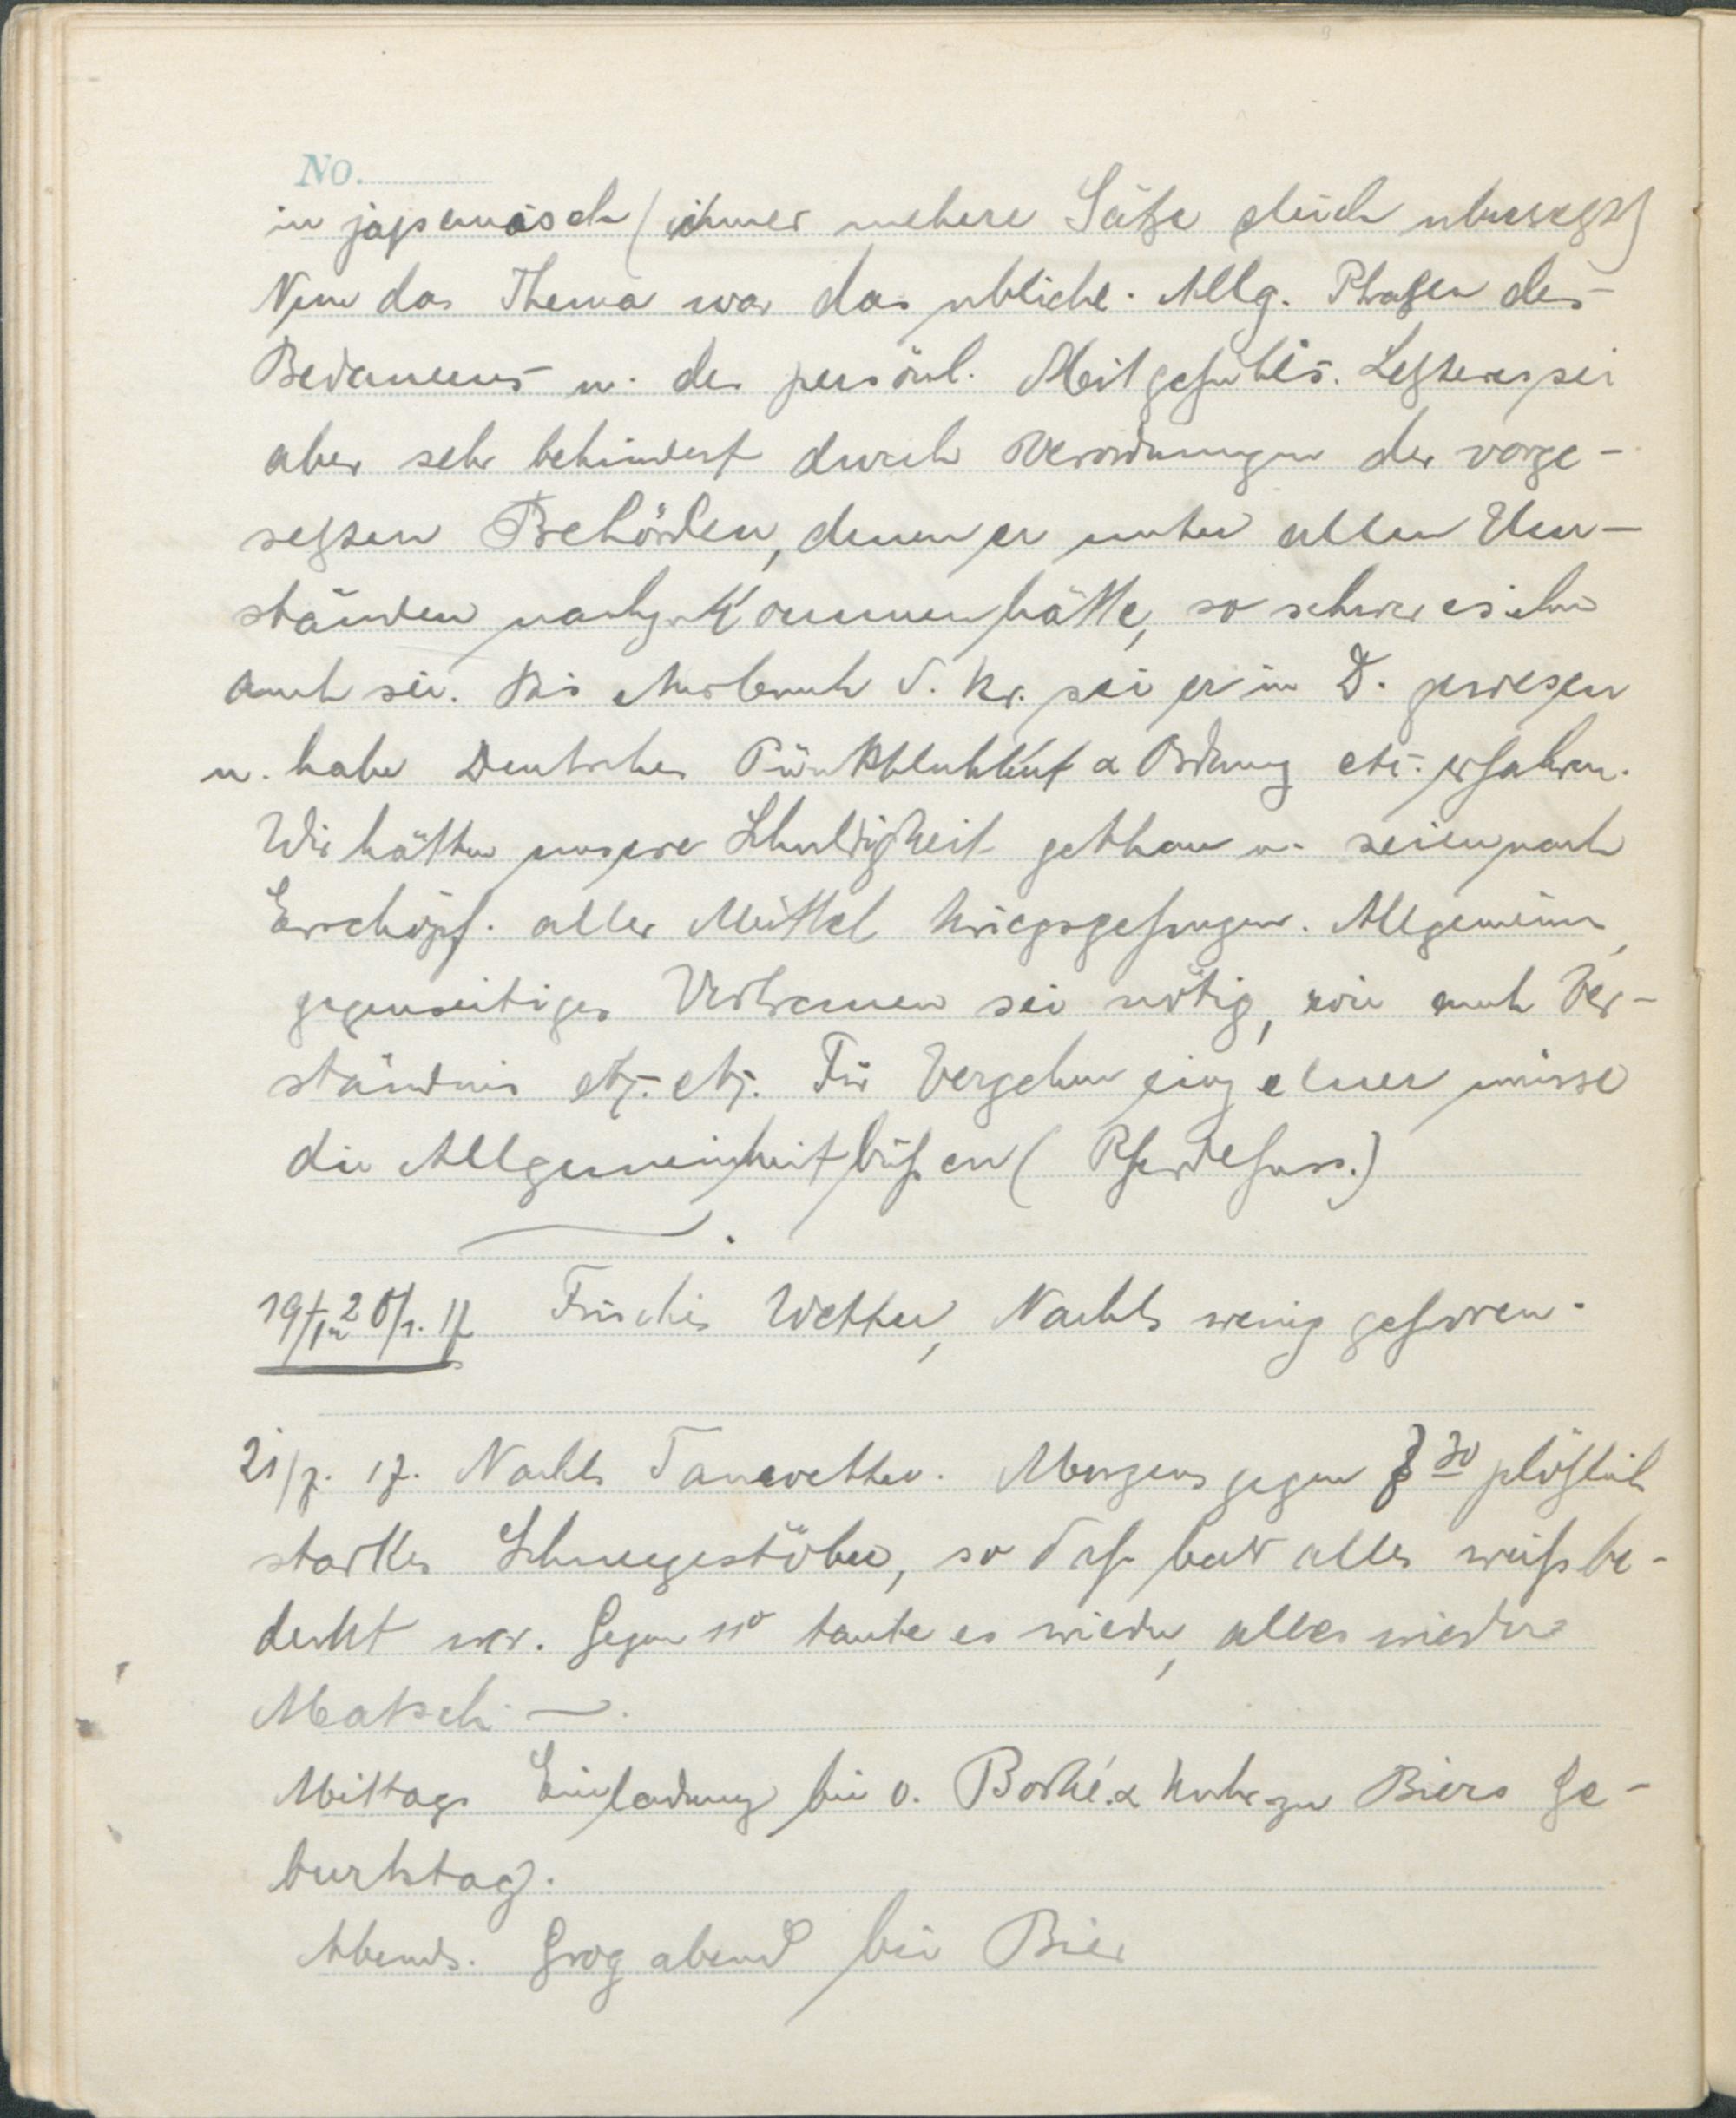 No.
in japanisch (immer mehere Sätze gleich übersetzt)
Nun das Thema war das übliche. Allg. Phrasen des
Bedauerns u. des persönl. Mitgefühls. Letzteres sei
aber sehr behindert durch Verordnungen der vorge-
setzten Behörden, denen er unter allen Um-
ständen nachzukommen hätte, so schwer es ihm
auch sei. Bis Ausbruch d. Kr. sei er in D. gewesen
u. habe Deutsche Pünktlichkeit & Ordnung etc. erfahren.
Wir hätten unsere Schuldigkeit gethan u. seien nach
Erschöpf. aller Mittel kriegsgefangen. Allgemeines,
gegenseitiges Vertrauen sei nötig, wie auch Ver-
ständnis etz. etz. Für Vergehen einzelner müsse
die Allgemeinheit büßen (Pferdefuss.)
19/1 u 20/1. 17 Frisches Wetter, Nachts wenig gefroren.
21/1. 17. Nachts Tauwetter. Morgens gegen 7 30 plötzlich
starkes Schneegestöber, so daß bald alles weiß be-
deckt war. Gegen 11° taute es wieder, alles wieder
Matsch —.
Mittags Einladung bei v. & zu Biers Ge-
burtstag.
Abends. Grogabend bei Bier